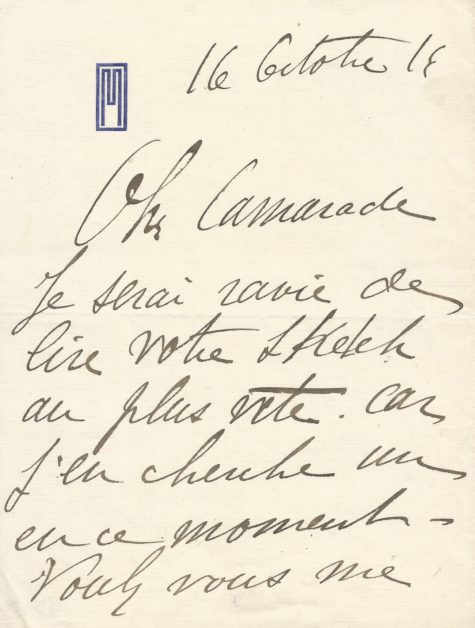 16 Octobre 18
Cher Camarade
Je serai ravie de
lire votre Sketch
au plus vite. car
j'en cherche un
en ce moment -
Voulez vous me